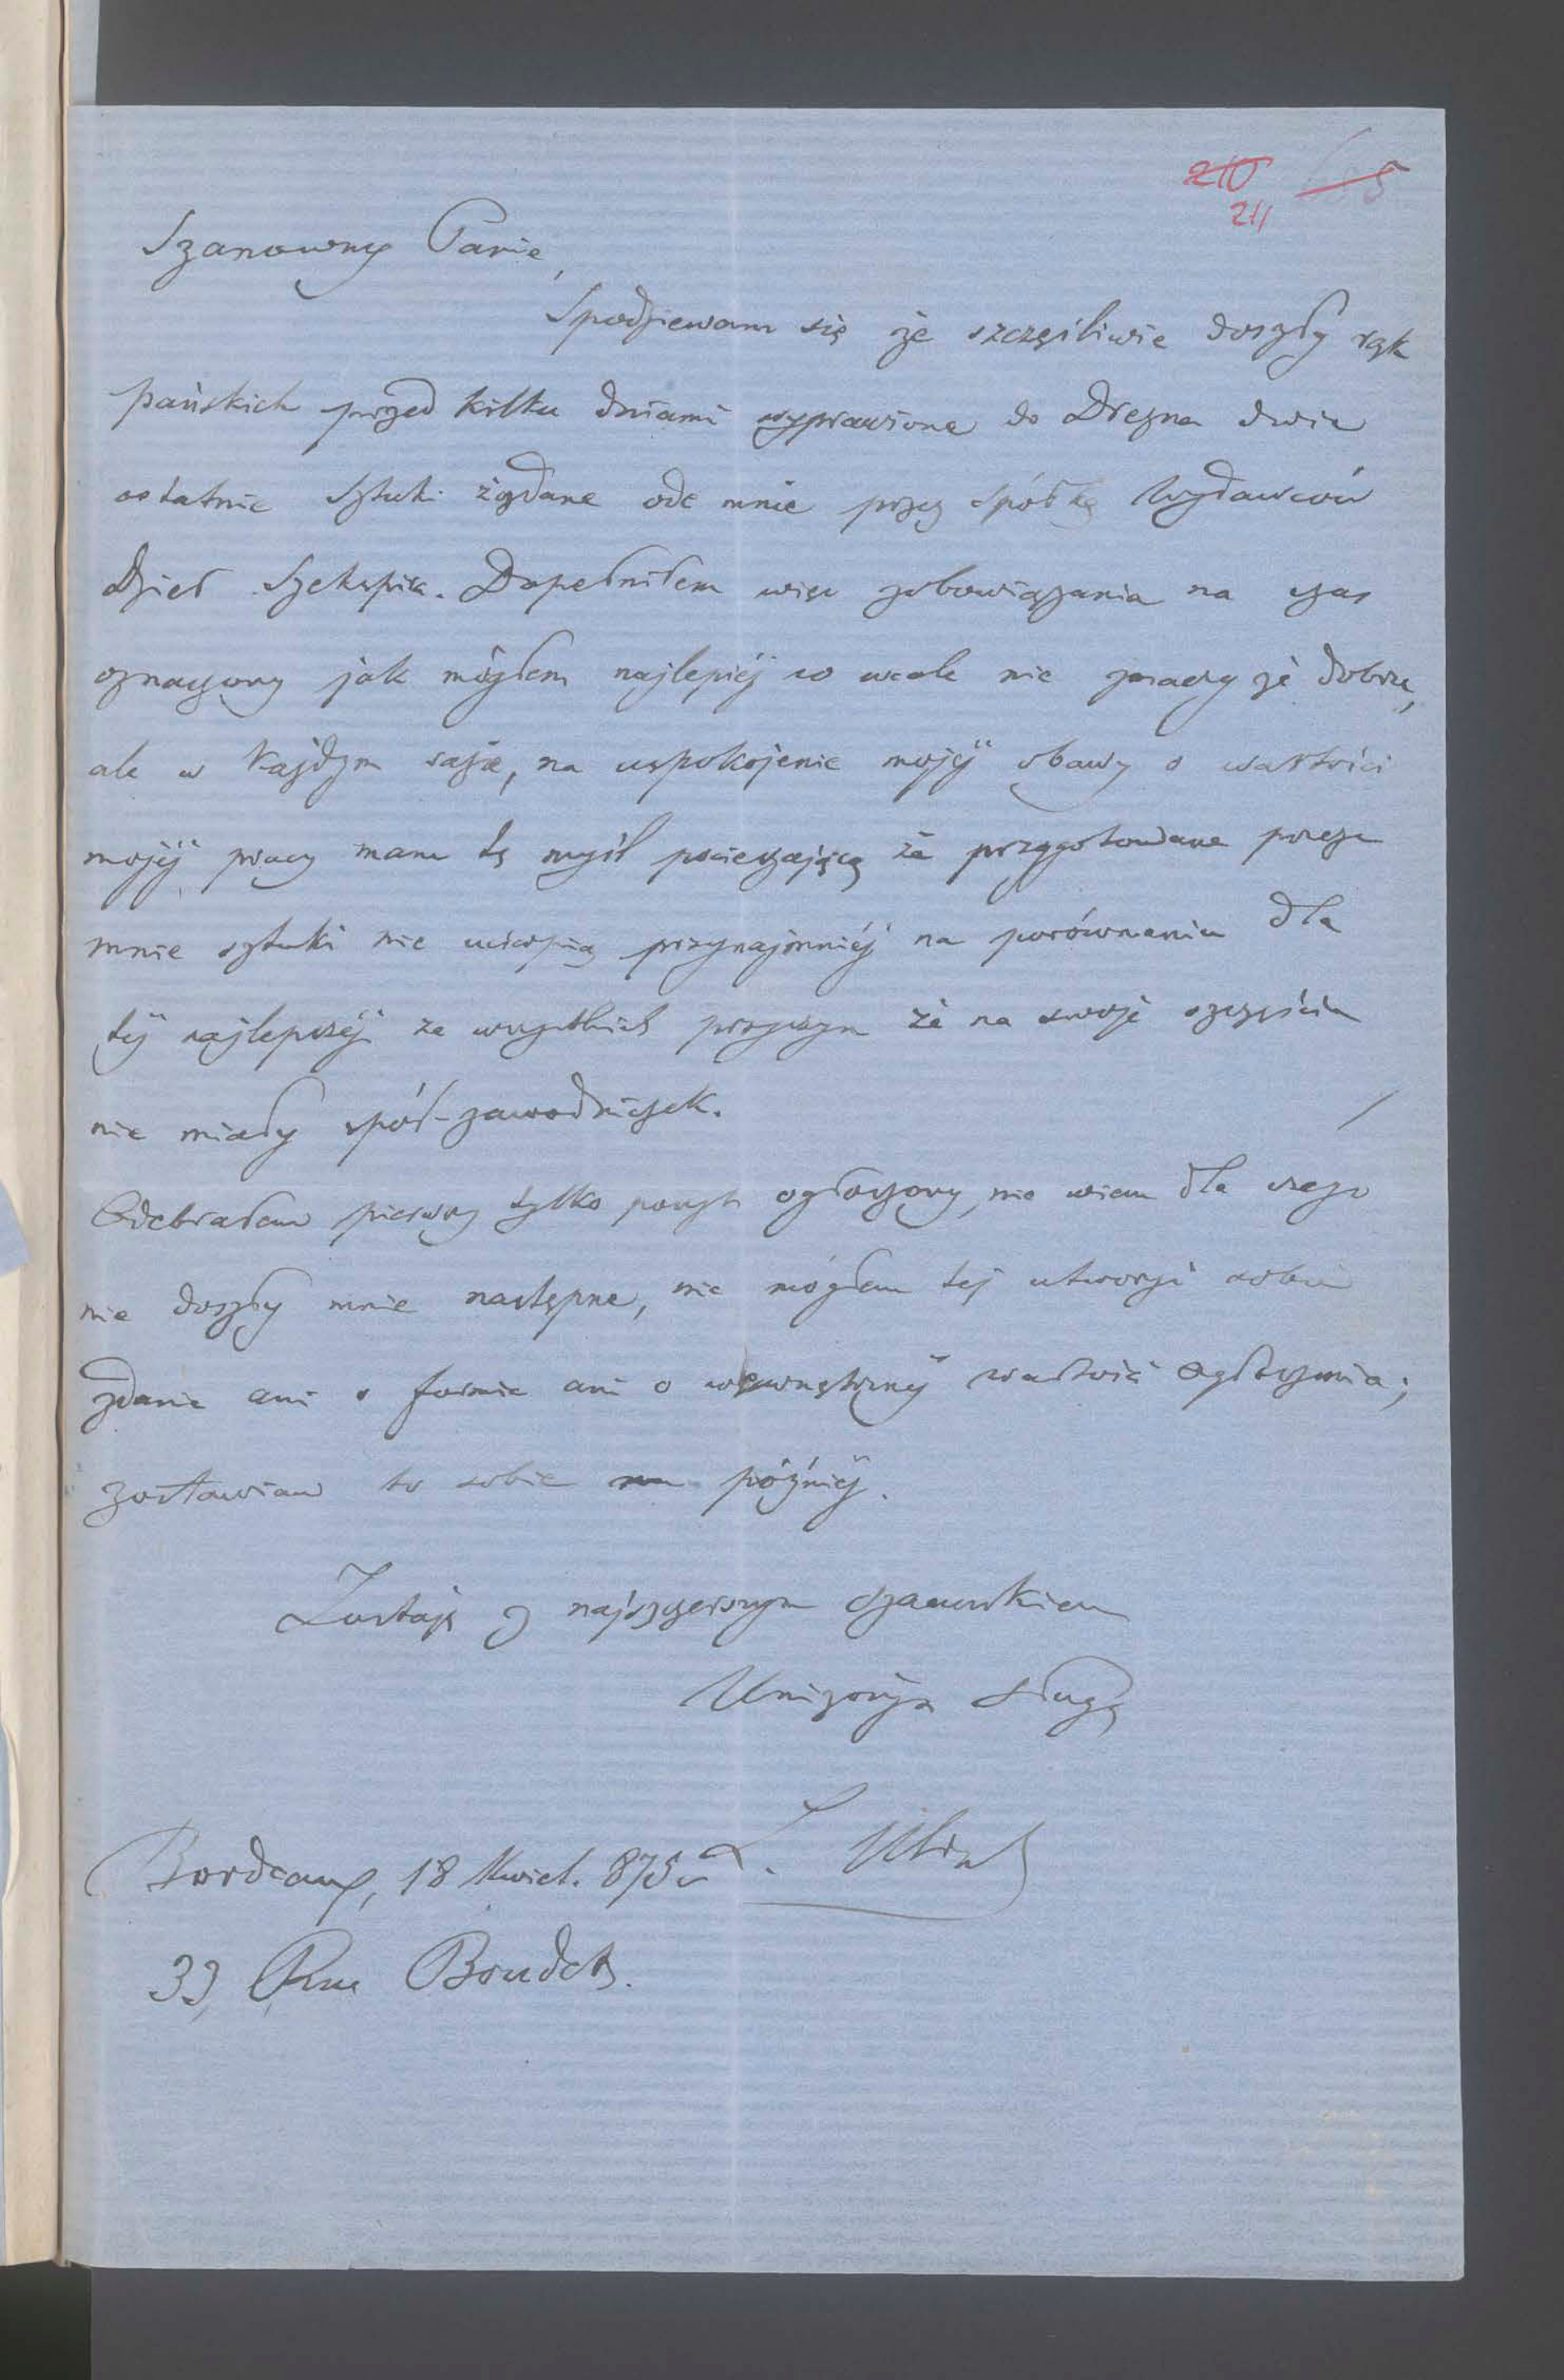 210
211
Szanowny Panie,
Spodziewam się że szczęśliwie doszły rąk
pańskich przed kilku dniami wyprawione do Drezna dwie
ostatnie sztuki żądane ode mnie przez spółkę Wydawców
Dzieł Szekspira. Dopełniłem więc zobowiązania na czas
oznaczony jak mogłem najlepiéj co wcale nie znaczy że dobrze,
ale w każdym razie, na uspokojenie mojéj obawy o wartości
mojéj pracy mam tę myśl pocieszającą że przygotowane przeze
mnie sztuki nie ucierpią przynajmniéj na porównaniu dla
téj najlepszéj ze wszystkich przyczyn że na swoje szczęście
nie miały spół-zawodniczek.
Odebrałem pierwszy tylko poszyt ogłoszony, nie wiem dla czego
nie doszły mnie następne, nie mogłem tej utworzyć sobie
zdania ani o formie ani o wewnętrznéj wartości ogłoszenia;
zostawiam to sobie na późniéj.
Zostaję z najszczerszym szacunkiem
Uniżonym sługą
L. Ulrich
Bordeaux, 18 Kwiet. 875 r.
39, Rue Boudet.